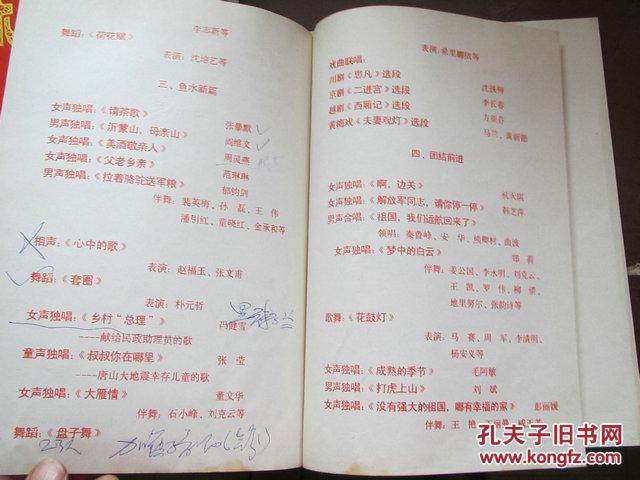 李志新等
舞蹈：《荷花赋》
表演：沈培艺等
三、鱼水新篇
女声独唱：《请茶歌》
男声独唱：《沂蒙山，母亲山》 张暴默
女声独唱：《美酒敬亲人》 阎维文
女声独唱：《父老乡亲》 周灵燕
男声独唱：《拉着骆驼送军粮》 范琳琳
郁钧剑
伴舞：裴英梅、孙磊、王伟
潘引红、童晓红、金承和等
相声：《心中的歌》
表演：赵福玉、张文甫
舞蹈：《套圈》
表演：朴元哲
女声独唱：《乡村“总理”》 冯健雪
----献给民政助理员的歌
童声独唱：《叔叔你在哪里》 张莹
----唐山大地震幸存儿童的歌
女声独唱：《大雁情》 董文华
伴舞：石小峰、刘克云等
舞蹈：《盘子舞》
表演：希里娜依等
戏曲联唱：
川剧《思凡》选段 沈铁梅
京剧《二进宫》选段 李长春
越剧《西厢记》选段 方亚芬
黄梅戏《夫妻观灯》选段 马兰、黄新德
四、团结前进
女声独唱：《啊，边关》 杭天琪
女声独唱：《解放军同志，请你停一停》 韩芝萍
男声合唱：《祖国，我们远航回来了》
领唱：秦鲁峰、安华、熊卿材、曲波
女声独唱：《梦中的白云》 郑莉
伴舞：姜公国、李水明、刘克云、
王凯、罗伟、柳倩、
地里努尔、张韵诗等
歌舞：《花鼓灯》
表演：马赛、周军、李清明、
杨安义等
女声独唱：《成熟的季节》 毛阿敏
男声独唱：《打虎上山》 刘斌
女声独唱：《没有强大的祖国，哪有幸福的家》 彭丽媛
伴舞：王艳
孔夫子旧书网